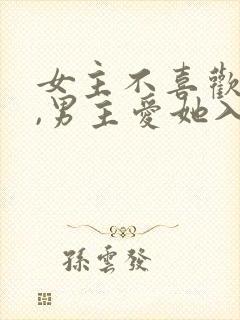 女主不喜歡
,男主愛她入
孫雲發